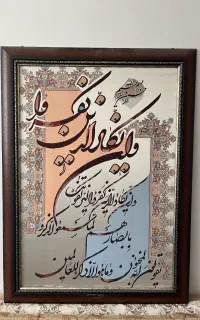 بسم الله الرحمن الرحیم
وإن یکاد الذین کفروا
وإن یکاد الذین کفروا لیزلقونک
بأبصارهم لما سمعوا الذکر و
یقولون إنه لمجنون وما هو إلا ذکر للعالمین